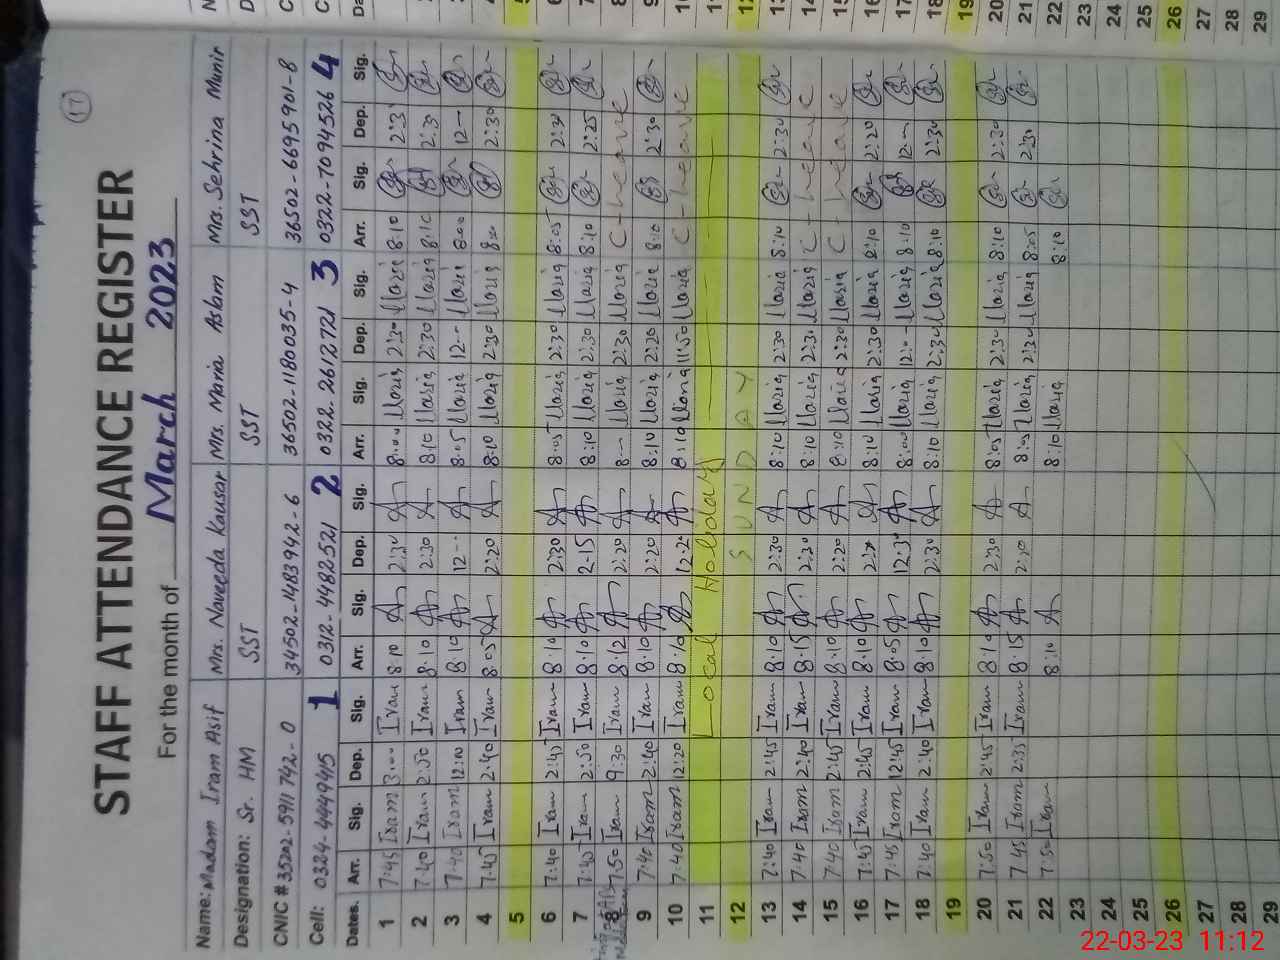 17
STAFF ATTENDANCE REGISTER
For the month of March 2023
Name: Madam Iram Asif Mrs. Naveeda Kausar Mrs. Maria Aslam Mrs. Sehrina Munir
Designation: Sr. HM SST SST SST
CNIC # 35202-5911742-0 34502-1483942-6 36502-1180035-4 36502-6695901-8
Cell: 0324-4449415 1 0312-4482521 2 0322-2612721 3 0322-7094526 4
Dates. Arr. Sig. Dep. Sig. Arr. Sig. Dep. Sig. Arr. Sig. Dep. Sig. Arr. Sig. Dep. Sig.
1 7:45 Iram 3:00 Iram 8:10 2:30 8:00 Maria 2:30 Maria 8:10 2:3
2 7:40 Iram 2:50 Iram 8:10 2:30 8:10 Maria 2:30 Maria 8:10 2:30
3 7:40 Iram 12:10 Iram 8:10 12-- 8:05 Maria 12-- Maria 8:00 12--
4 7:45 Iram 2:40 Iram 8:05 2:20 8:10 Maria 2:30 Maria 8:00 2:30
5
6 7:40 Iram 2:45 Iram 8:10 2:30 8:05 Maria 2:30 Maria 8:05 2:30
7 7:45 Iram 2:50 Iram 8:10 2-15 8:10 Maria 2:30 Maria 8:10 2:25
8 7:50 Iram 9:30 Iram 8:12 2:20 8-- Maria 2:30 Maria C-Leave
9 7:40 Iram 2:40 Iram 8:10 2:20 8:10 Maria 2:20 Maria 8:10 2:30
10 7:40 Iram 12:20 Iram 8:10 12:20 8:10 Maria 11:50 Maria C-Leave
11 Local Holiday
12 SUNDAY
13 7:40 Iram 2:45 Iram 8:10 2:30 8:10 Maria 2:30 Maria 8:10 2:30
14 7:40 Iram 2:40 Iram 8:15 2:30 8:10 Maria 2:30 Maria C-Leave
15 7:40 Iram 2:45 Iram 8:10 2:20 8:10 Maria 2:30 Maria C-Leave
16 7:45 Iram 2:45 Iram 8:10 8:10 Maria 2:30 Maria 8:10 2:20
17 7:45 Iram 12:45 Iram 8:05 12:30 8:00 Maria 12:00 Maria 8:10 12--
18 7:40 Iram 2:40 Iram 8:10 2:30 8:10 Maria 2:30 Maria 8:10 2:30
19
20 7:50 Iram 2:45 Iram 8:10 2:30 8:05 Maria 2:30 Maria 8:10 2:30
21 7:45 Iram 2:35 Iram 8:15 2:20 8:05 Maria 2:30 Maria 8:05 2:30
22 7:50 Iram 8:10 8:10 Maria 8:10
23
24
25
26
27
28
29
5
6
8
9
10
11
12
13
14
15
16
17
18
19
20
21
22
23
24
25
26
27
28
29
22-03-23 11:12